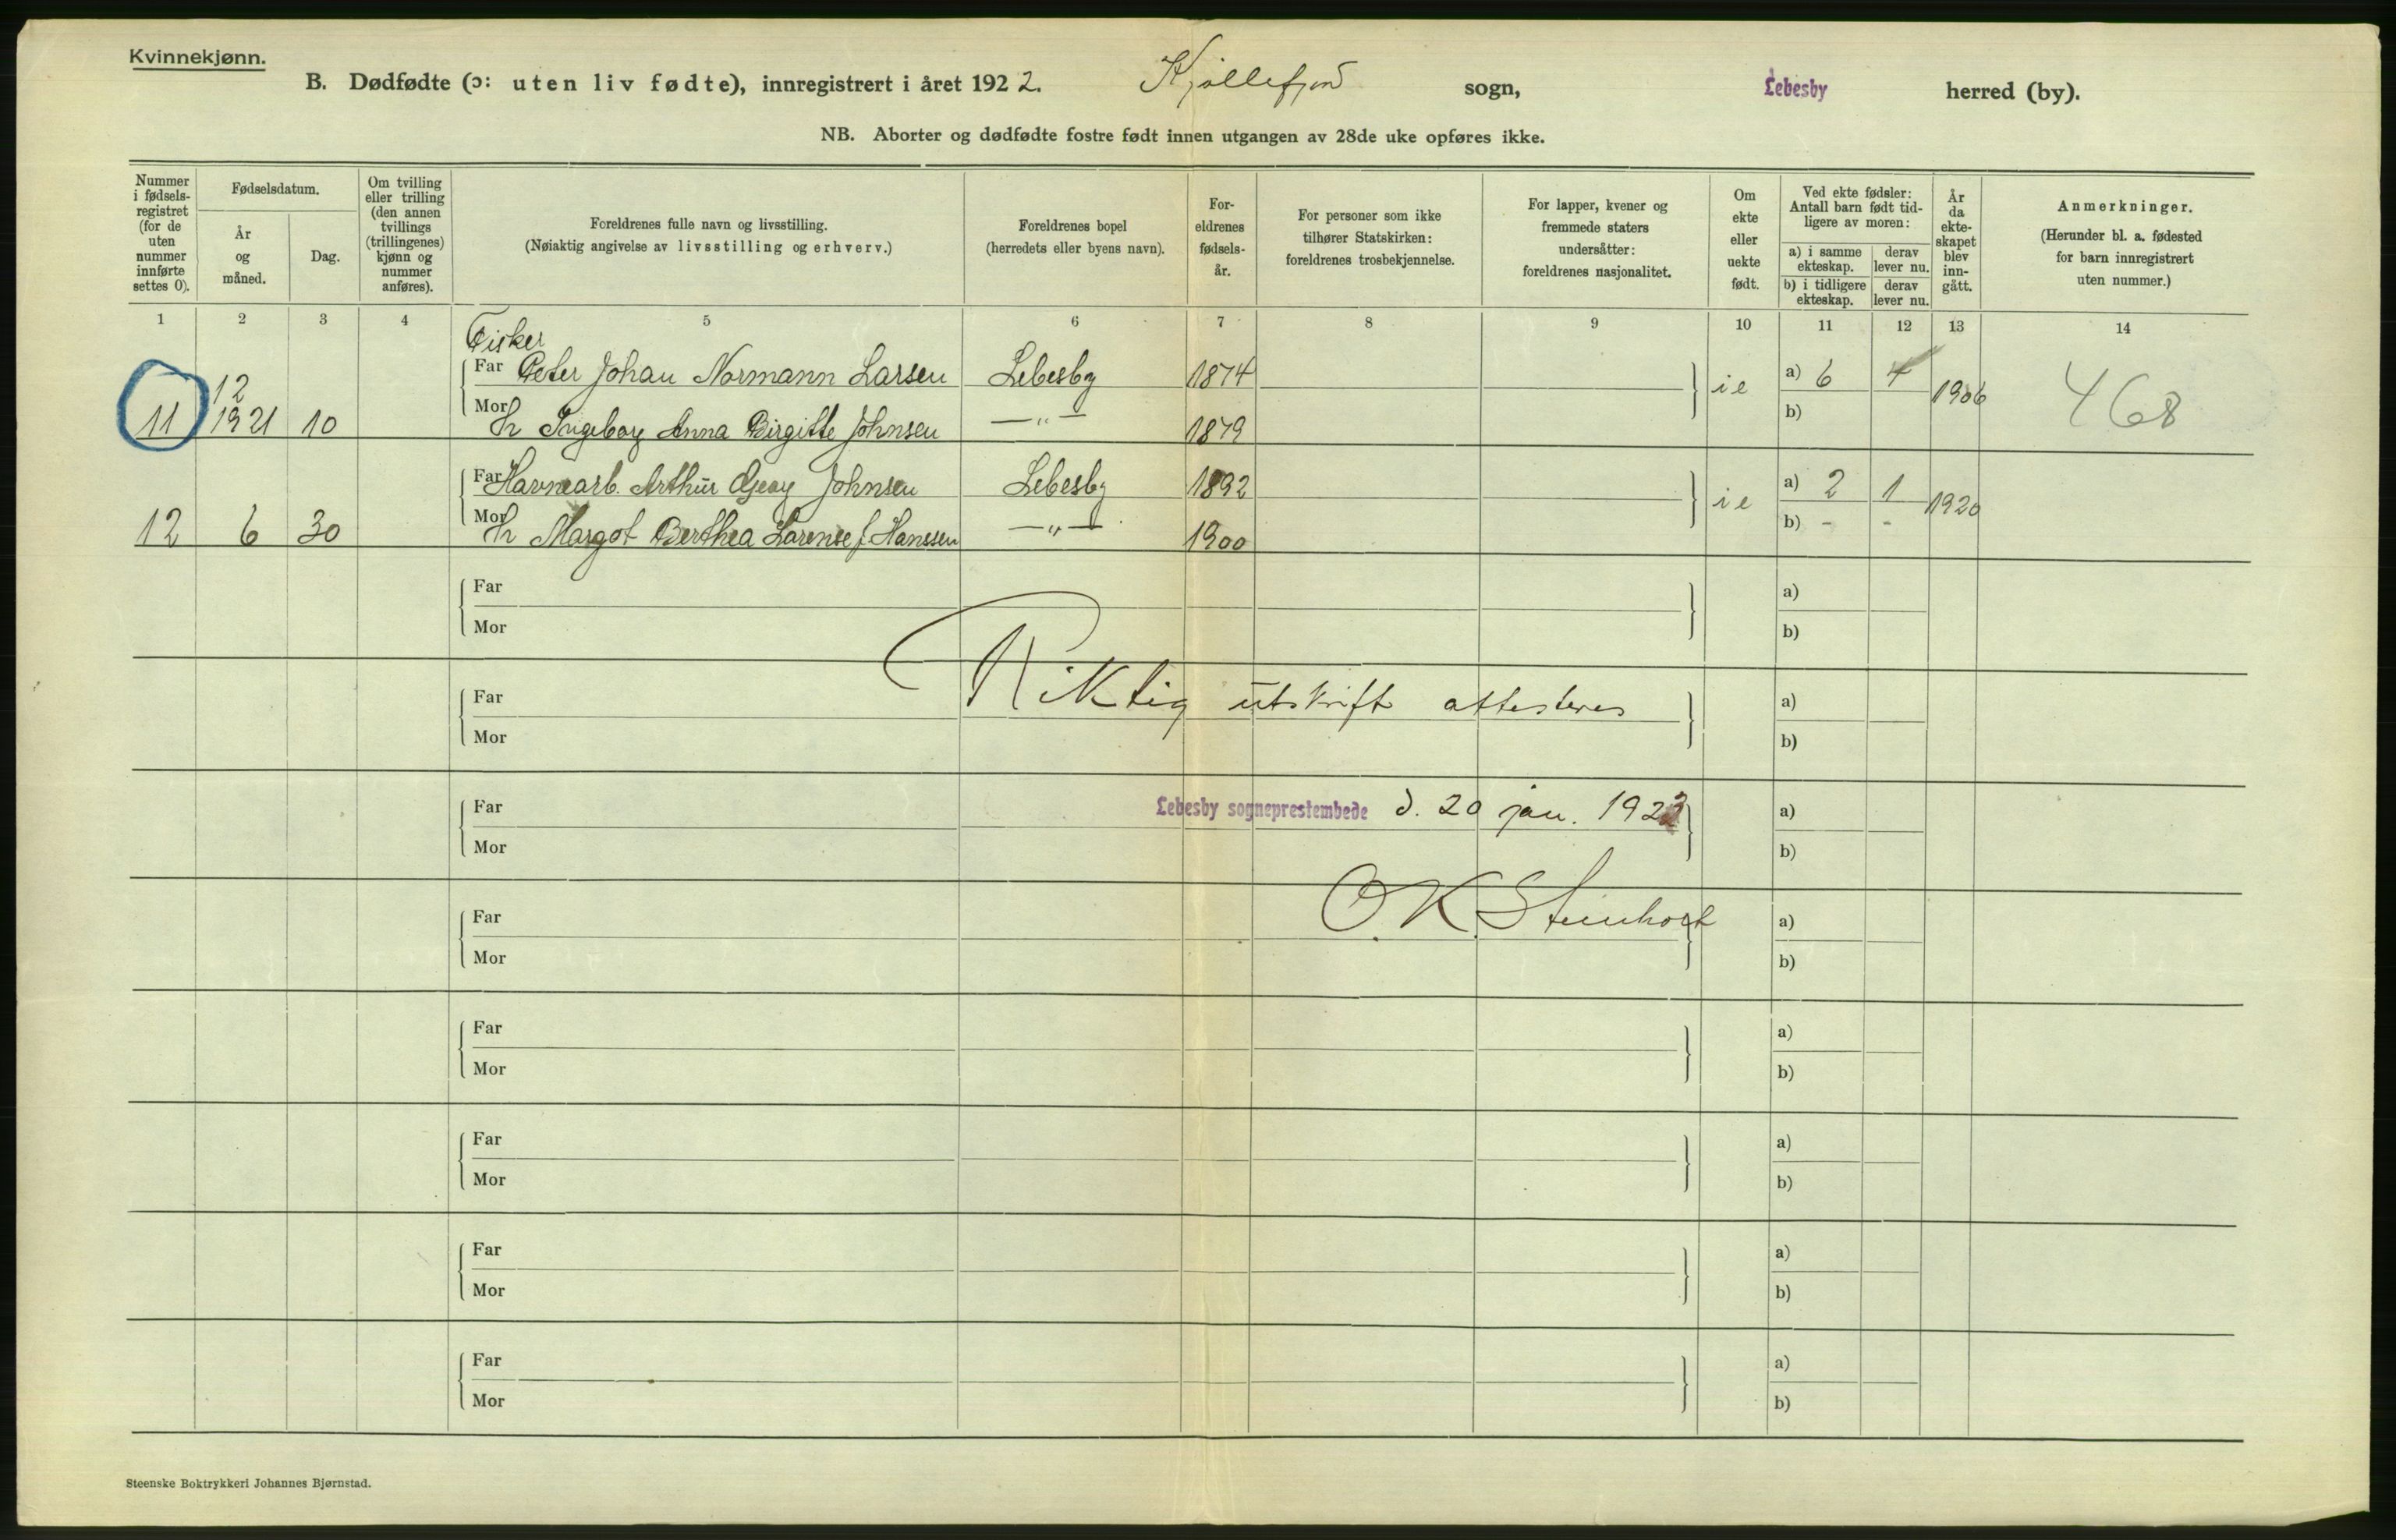 Kvinnekjønn.
B. Dødfødte (ɔ: uten liv fødte), innregistrert i året 1922. Kjøllefjord sogn, Lebesby herred (by).
NB. Aborter og dødfødte fostre født innen utgangen av 28de uke opføres ikke.
Nummer i fødsels-registret (for de uten nummer innførte settes 0).
Fødselsdatum.
År og måned.
Dag.
Om tvilling eller trilling (den annen tvillings (trillingenes) kjønn og nummer anføres).
Foreldrenes fulle navn og livsstilling.
(Nøiaktig angivelse av livsstilling og erhverv.)
Foreldrenes bopel
(herredets eller byens navn).
For-eldrenes fødsels-år.
For personer som ikke tilhører Statskirken: foreldrenes trosbekjennelse.
For lapper, kvener og fremmede staters undersåtter: foreldrenes nasjonalitet.
Om ekte eller uekte født.
Ved ekte fødsler:
Antall barn født tid-ligere av moren:
a) i samme ekteskap.
derav lever nu.
b) i tidligere ekteskap.
derav lever nu.
År da ekte-skapet blev inn-gått.
Anmerkninger.
(Herunder bl. a. fødested for barn innregistrert uten nummer.)
1 2 3 4 5 6 7 8 9 10 11 12 13 14
Fisker
Far Peter Johan Normann Larsen Lebesby 1874 ie a) 6 4 1906 468
11 12 1921 10 Mor H Ingeborg Anna Birgitte Johnsen —"— 1879 b)
Far Havnearb. Arthur Georg Johnsen Lebesby 1892 ie a) 2 1 1920
12 6 30 Mor H Margot Berthea Larense f. Hanssen —"— 1900 b) - -
Far a)
Mor b)
Riktig utskrift attesteres
Far a)
Mor b)
Lebesby sogneprestembede d. 20 jan. 1923
Far a)
Mor b)
O. K. Steinholt
Far a)
Mor b)
Far a)
Mor b)
Far a)
Mor b)
Far a)
Mor b)
Far a)
Mor b)
Steenske Boktrykkeri Johannes Bjørnstad.